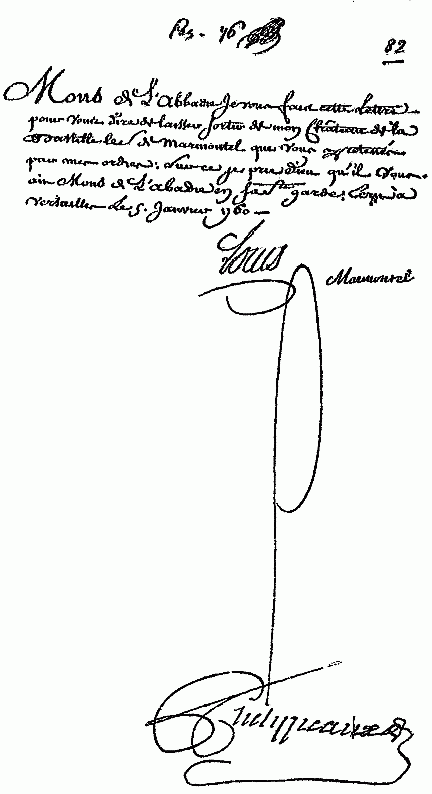 82
Mons de L'Abbadie Je vous fais cette Lettre
pour vous dire de laisser sortir de mon Château de la
Bastille le S de Marmontel que vous
par mes ordres; Sur ce je prie dieu qu'il vous
ait Mons de L'abadie en sa Ste garde; Ecrit à
Versailles le 5. Janvier 1760
Louis
Marmontel
Phelypeaux